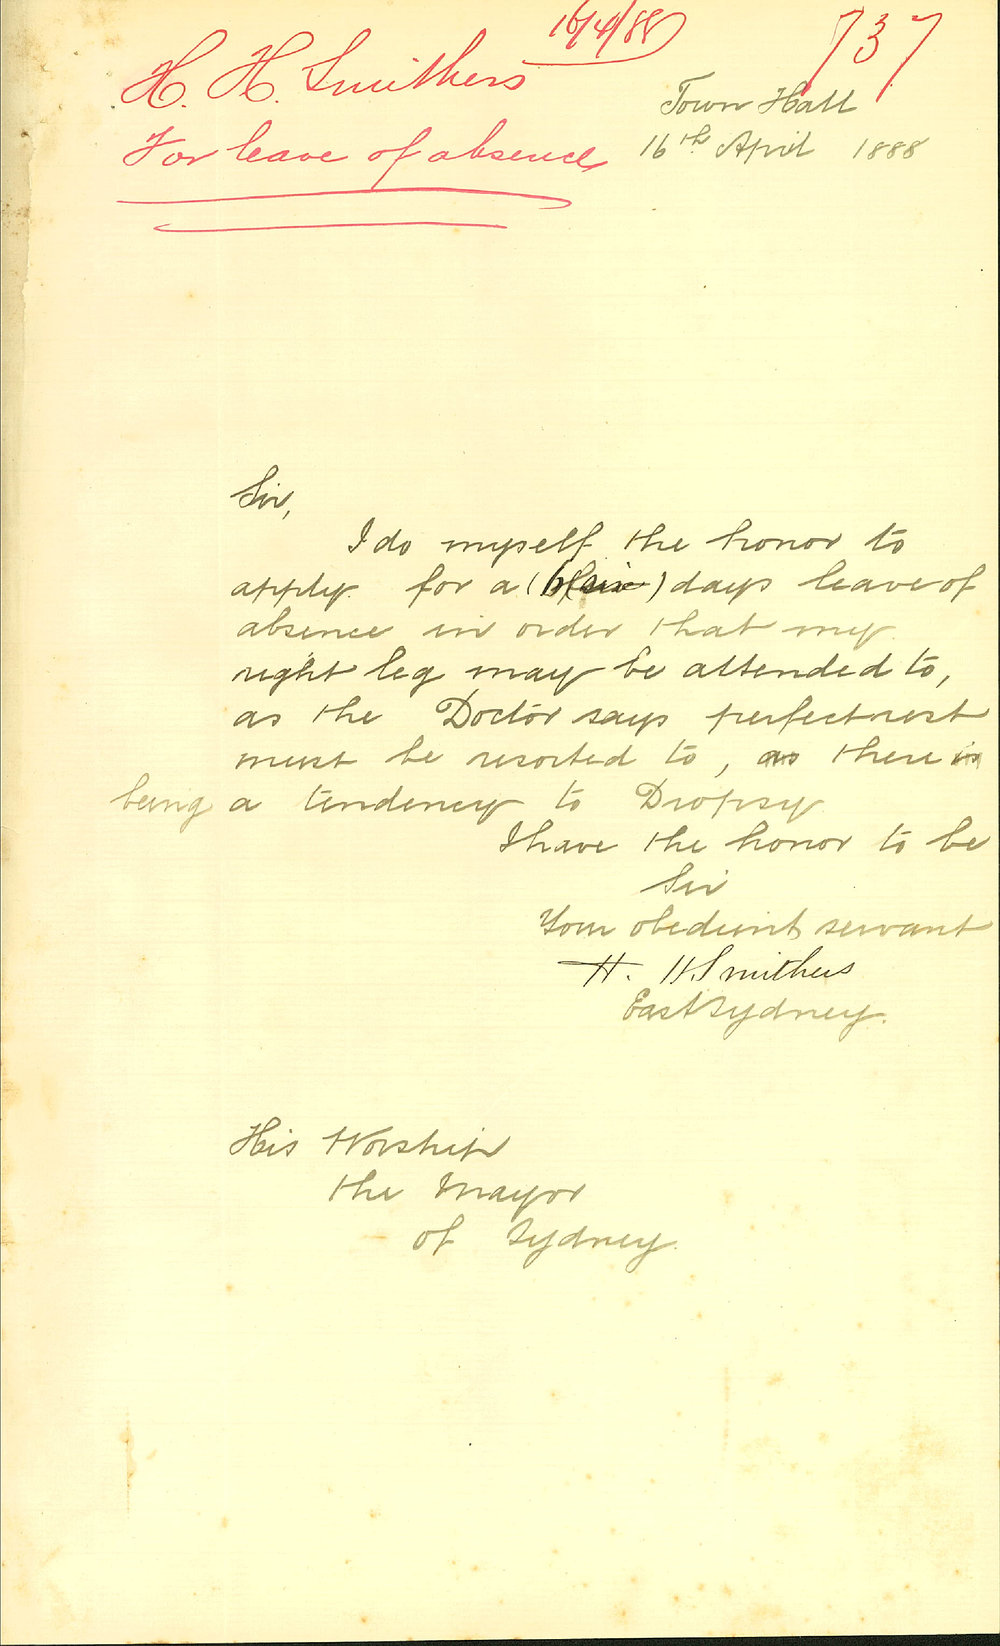 16/4/88
737
H. H. Smithers
For leave of absence
Town Hall
16th April 1888
Sir,
I do myself the honor to
apply for a (6) (six) days leave of
absence in order that my
right leg may be attended to,
as the Doctor says perfect rest
must be resorted to, as there is
being a tendency to Dropsy
I have the honor to be
Sir
Your obedient servant
H. H Smithers
East Sydney.
His Worship
the Mayor
of Sydney.